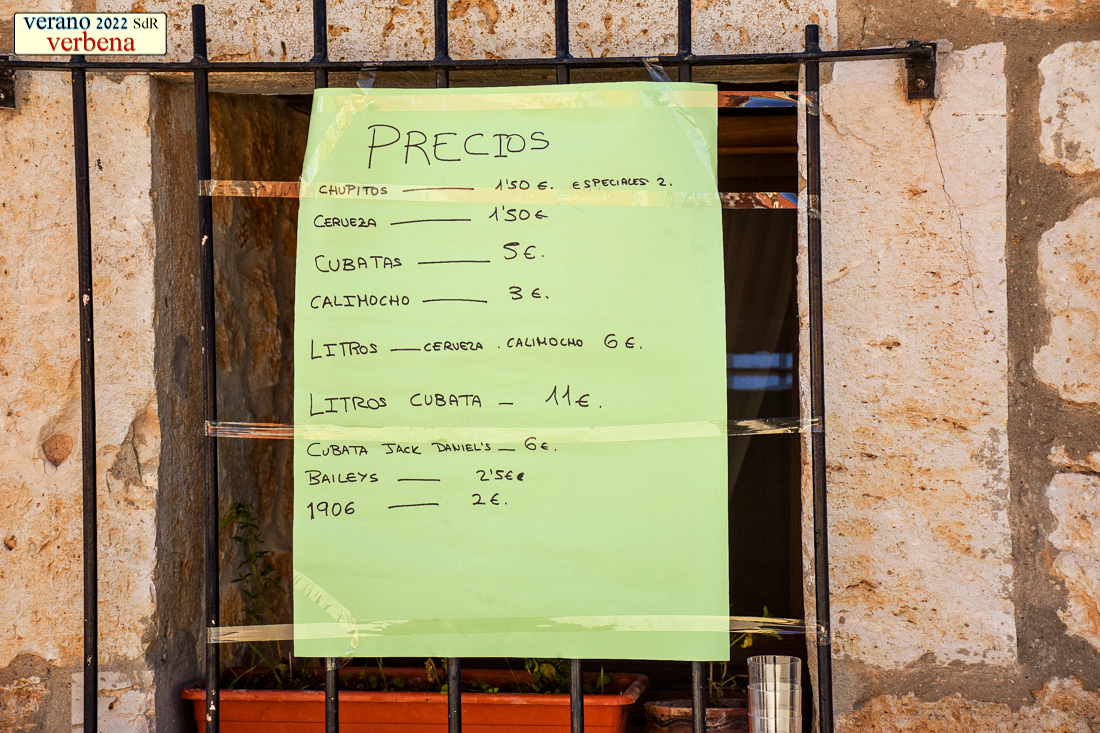 verano 2022 SdR
verbena
PRECIOS
CHUPITOS — 1'50 €. ESPECIALES 2.
CERVEZA — 1'50 €
CUBATAS — 5 €.
CALIMOCHO — 3 €.
LITROS — CERVEZA . CALIMOCHO 6 €.
LITROS CUBATA — 11 €.
CUBATA JACK DANIEL'S — 6 €.
BAILEYS — 2'5 €
1906 — 2 €.